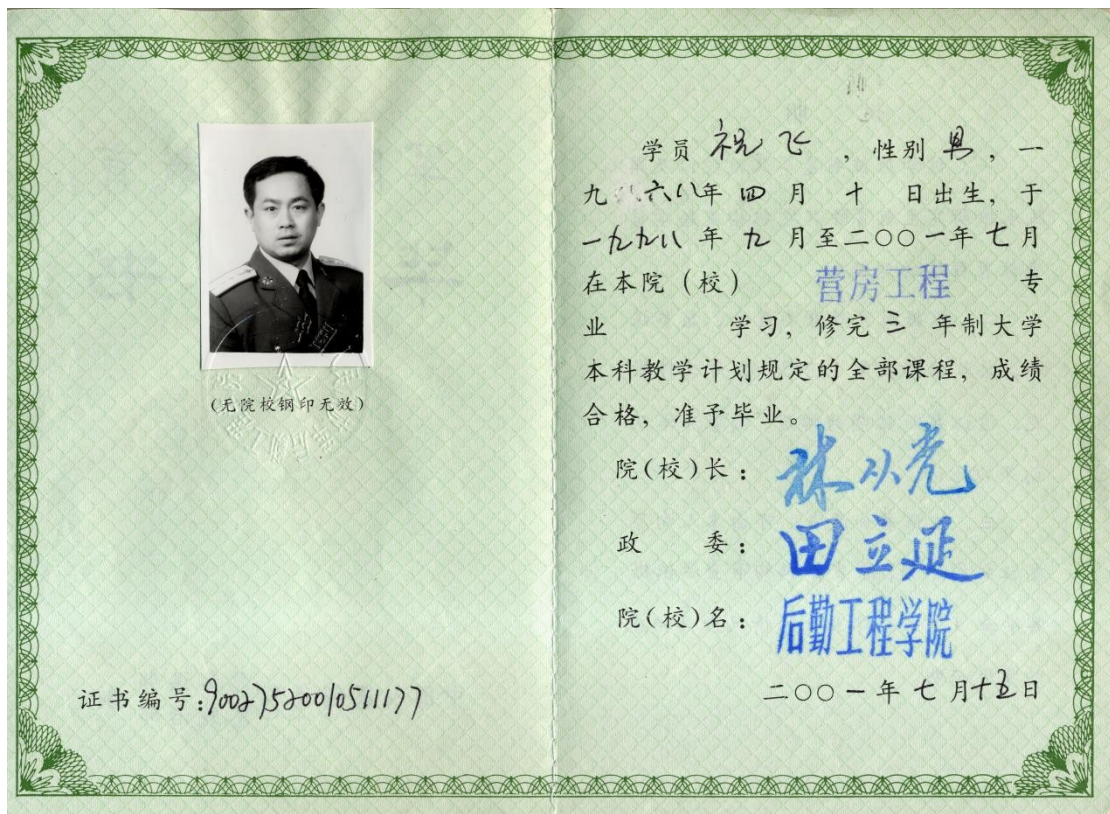 (无院校钢印无效)
证书编号:90027520010511177
学员 祝飞 ，性别 男 ，一
九六八年 四 月 十 日出生，于
一九九八 年 九 月至二〇〇一年七月
在本院（校） 营房工程 专
业 学习，修完 三 年制大学
本科教学计划规定的全部课程，成绩
合格，准予毕业。
院(校)长： 林从亮
政 委： 田立延
院(校)名： 后勤工程学院
二〇〇一年 七 月十五日